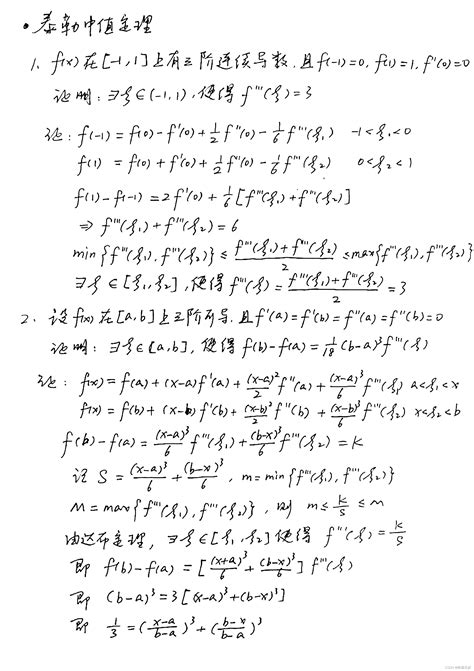 • 泰勒中值定理
1. f(x)在[-1,1]上有三阶连续导数,且f(-1)=0,f(1)=1,f'(0)=0
证明:∃ξ∈(-1,1),使得f'''(ξ)=3
证: f(-1)=f(0)-f'(0)+½f''(0)-⅙f'''(ξ₁) -1<ξ₁<0
f(1) =f(0)+f'(0)+½f''(0)-⅙f'''(ξ₂) 0<ξ₂<1
f(1)-f(-1)=2f'(0)+⅙[f'''(ξ₁)+f'''(ξ₂)]
⇒ f'''(ξ₁)+f'''(ξ₂)=6
min{f'''(ξ₁),f'''(ξ₂)}≤(f'''(ξ₁)+f'''(ξ₂))/2≤max{f'''(ξ₁),f'''(ξ₂)}
∃ξ∈[ξ₁,ξ₂],使得f'''(ξ)=(f'''(ξ₁)+f'''(ξ₂))/2=3
2. 设f(x)在[a,b]上三阶可导,且f'(a)=f'(b)=f''(a)=f''(b)=0
证明:∃ξ∈[a,b],使得f(b)-f(a)=1/18(b-a)³f'''(ξ)
证: f(x)=f(a)+(x-a)f'(a)+(x-a)²/2 f''(a)+(x-a)³/6 f'''(ξ₁) a<ξ₁<x
f(x)=f(b)+(x-b)f'(b)+(x-b)²/2 f''(b)+(x-b)³/6 f'''(ξ₂) x<ξ₂<b
f(b)-f(a)=(x-a)³/6 f'''(ξ₁)+(b-x)³/6 f'''(ξ₂)=K
记 S=(x-a)³/6+(b-x)³/6, m=min{f'''(ξ₁),f'''(ξ₂)}
M=max{f'''(ξ₁),f'''(ξ₂)}, 则 m≤K/S≤M
由达布定理, ∃ξ∈[ξ₁,ξ₂]使得 f'''(ξ)=K/S
即 f(b)-f(a)=[(x+a)³/6+(b-x)³/6]f'''(ξ)
即 (b-a)³=3[(x-a)³+(b-x)³]
即 1/3=((x-a)/(b-a))³+((b-x)/(b-a))³